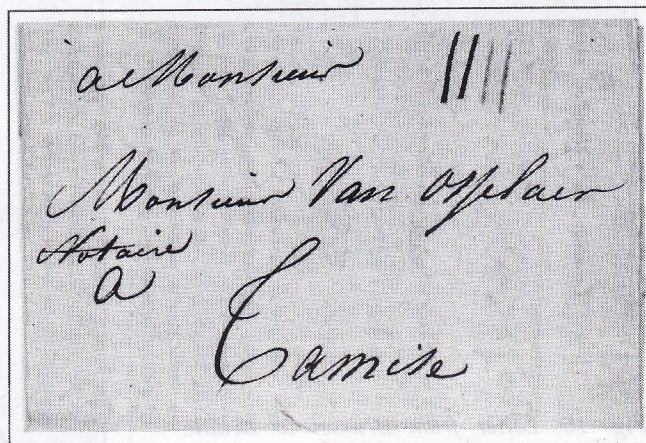 à Monsieur
Monsieur Van Osselaer
Notaire
A
Tamise